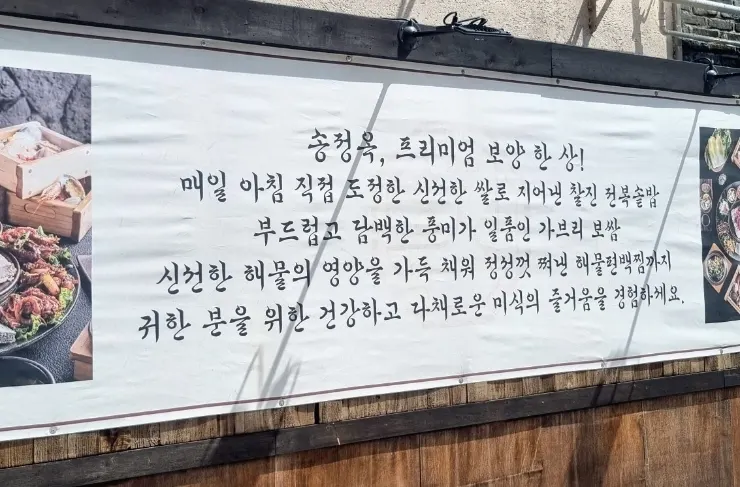 송정옥, 프리미엄 보양 한 상!
매일 아침 직접 도정한 신선한 쌀로 지어낸 찰진 전복솥밥
부드럽고 담백한 풍미가 일품인 가브리 보쌈
신선한 해물의 영양을 가득 채워 정성껏 쪄낸 해물편백찜까지
귀한 분을 위한 건강하고 다채로운 미식의 즐거움을 경험하세요.